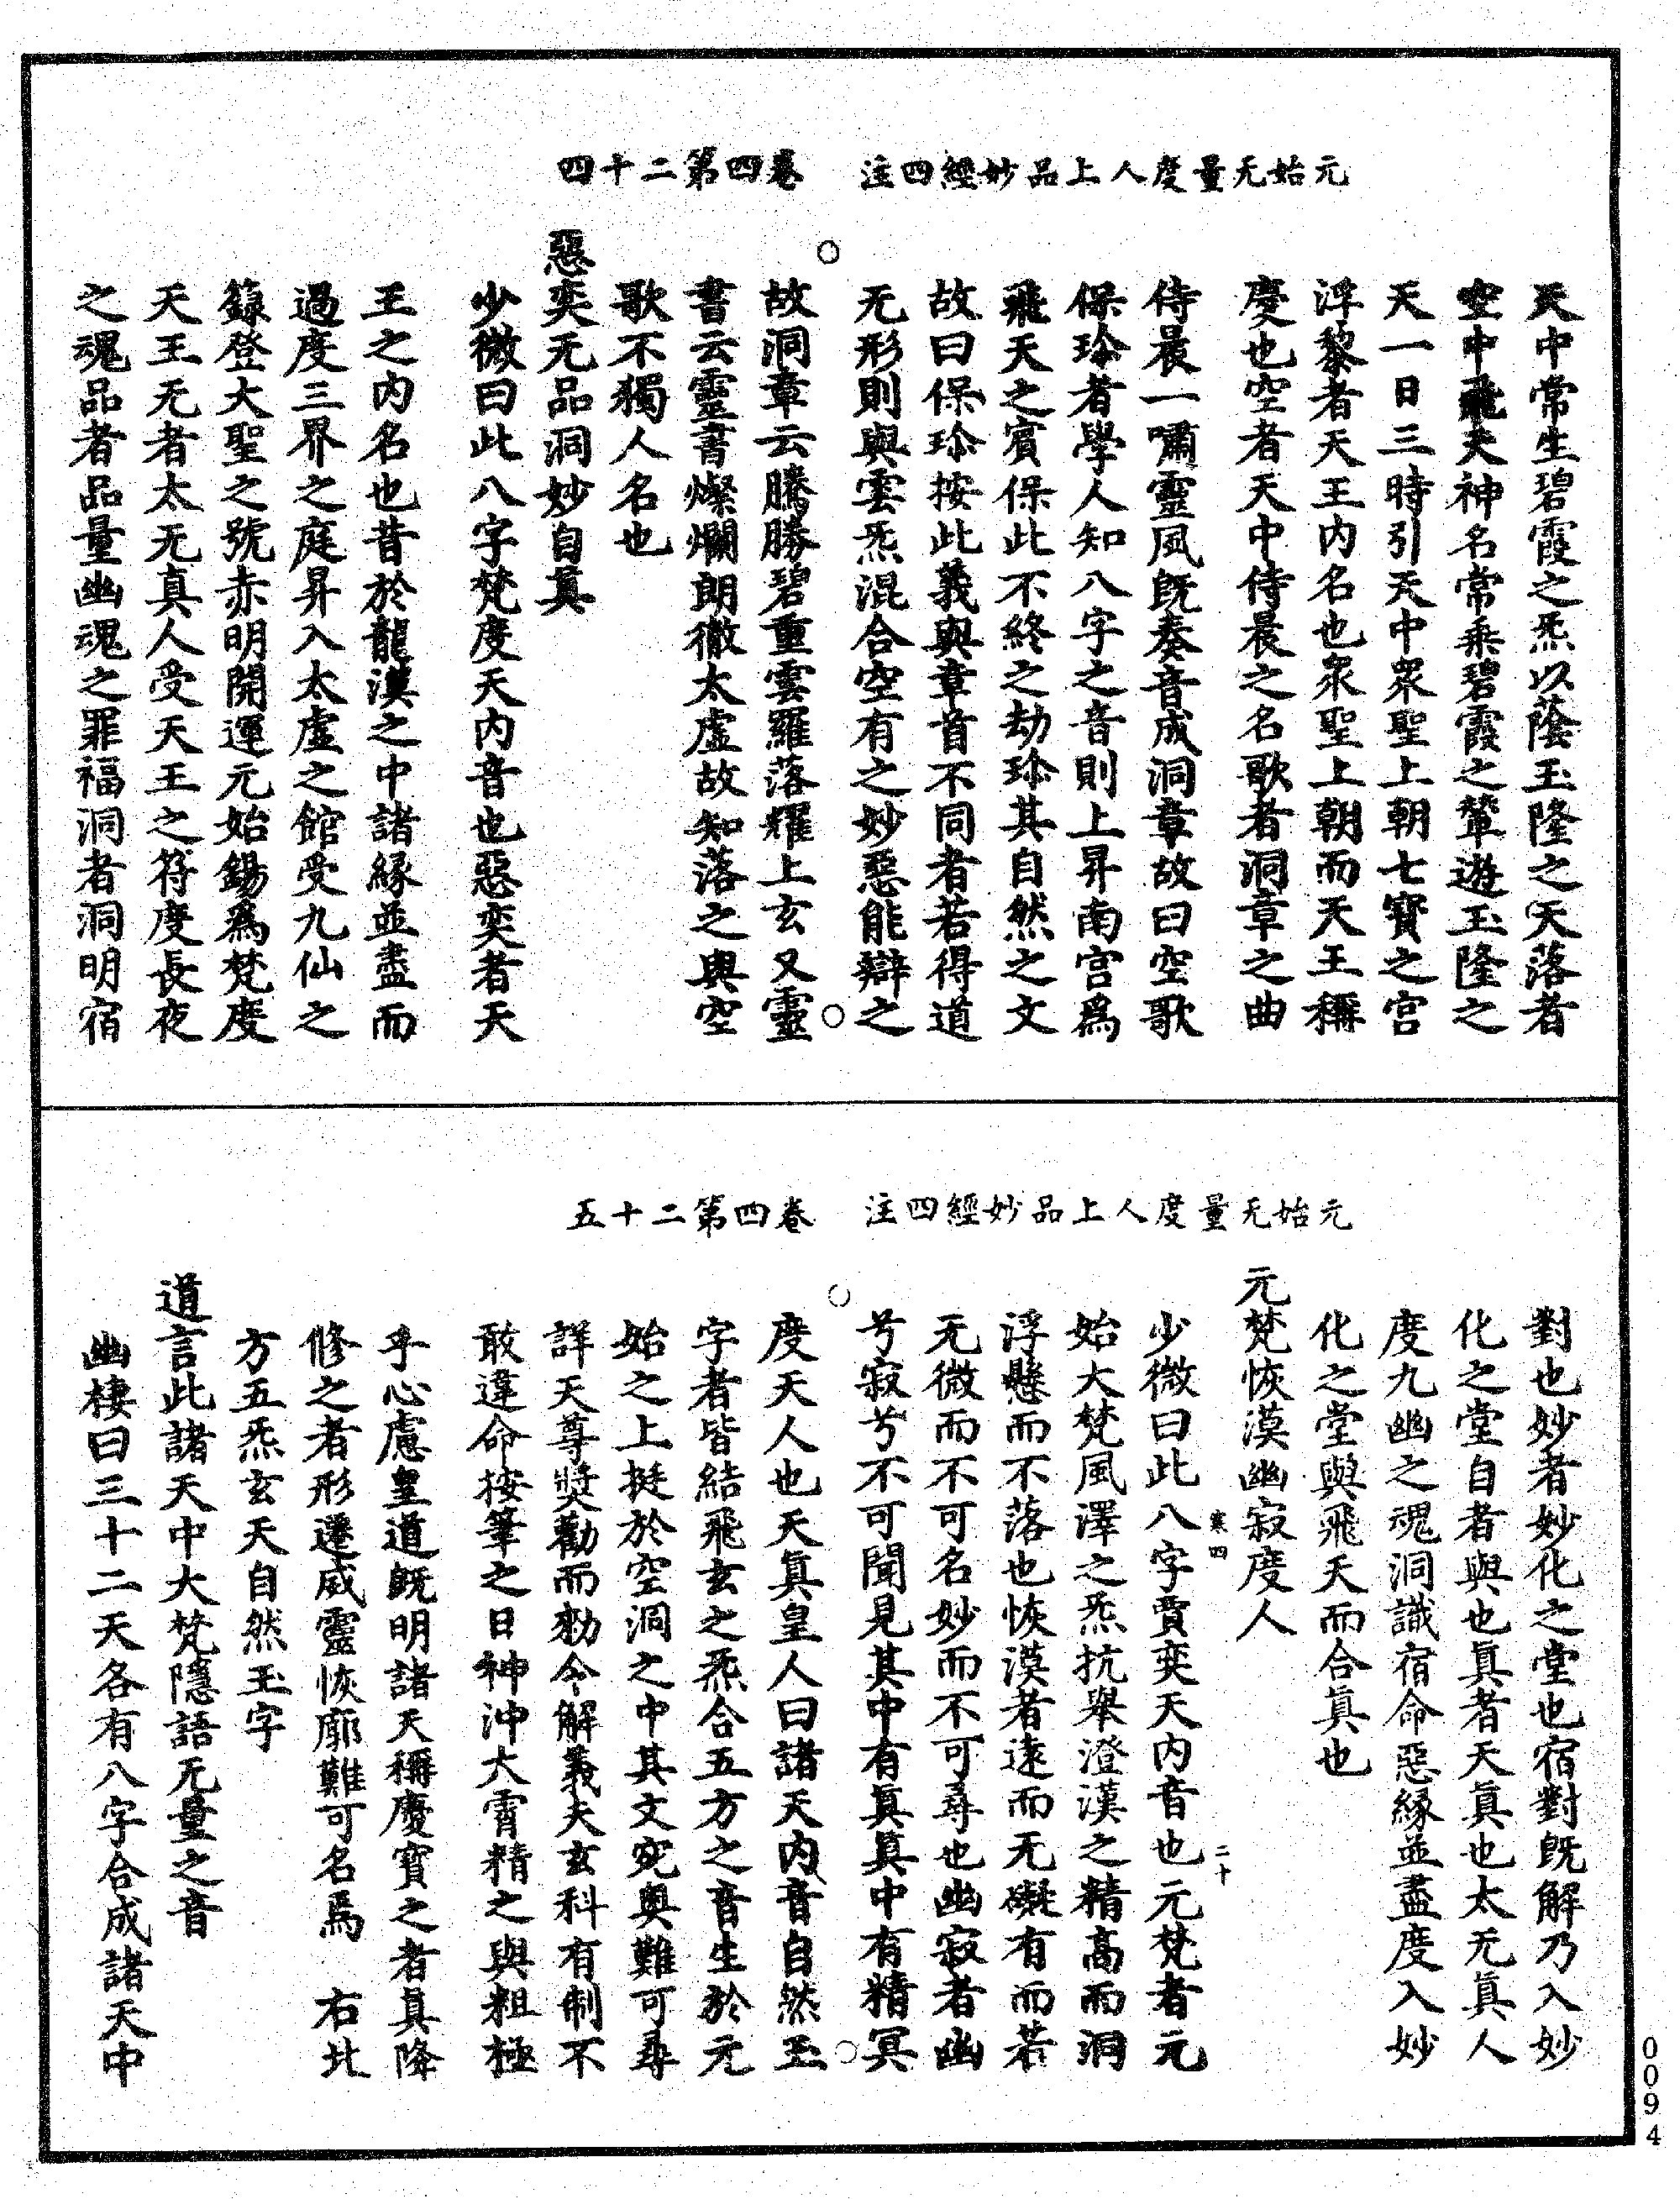 元始无量度人上品妙經四注　卷四第二十四
天中常生碧霞之炁以蔭玉隆之天落者
空中飛天神名常乘碧霞之輦遊玉隆之
天一日三時引天中眾聖上朝七寶之宮
浮黎者天王內名也眾聖上朝而天王稱
慶也空者天中侍晨之名歌者洞章之曲
侍晨一嘯靈風既奏音成洞章故曰空歌
保珍者學人知八字之音則上昇南宮為
飛天之賓保此不終之劫珍其自然之文
故曰保珍按此義與章首不同者若得道
无形則與雲炁混合空有之妙惡能辯之
故洞章云騰勝碧重雲羅落耀上玄又靈
書云靈書燦爛朗徹太虛故知落之與空
歌不獨人名也
惡奕无品洞妙自真
少微曰此八字梵度天內音也惡奕者天
王之內名也昔於龍漢之中諸緣並盡而
過度三界之庭昇入太虛之館受九仙之
籙登大聖之號赤明開運元始錫為梵度
天王无者太无真人受天王之符度長夜
之魂品者品量幽魂之罪福洞者洞明宿
元始无量度人上品妙經四注　卷四第二十五
對也妙者妙化之堂也宿對既解乃入妙
化之堂自者與也真者天真也太无真人
度九幽之魂洞識宿命惡緣並盡度入妙
化之堂與飛天而合真也
元梵恢漠幽寂度人
寒四　二十
少微曰此八字賈奕天內音也元梵者元
始大梵風澤之炁抗舉澄漢之精高而洞
浮懸而不落也恢漠者遠而无礙有而若
无微而不可名妙而不可尋也幽寂者幽
兮寂兮不可聞見其中有真真中有精冥
度天人也天真皇人曰諸天內音自然玉
字者皆結飛玄之炁合五方之音生於元
始之上挺於空洞之中其文宛奧難可尋
詳天尊獎勸而勑令解義夫玄科有制不
敢違命按筆之日神沖大霄精之與粗極
乎心慮皇道既明諸天稱慶寶之者真降
修之者形遷威靈恢廓難可名焉　右北
方五炁玄天自然玉字
道言此諸天中大梵隱語无量之音
幽棲曰三十二天各有八字合成諸天中
0094